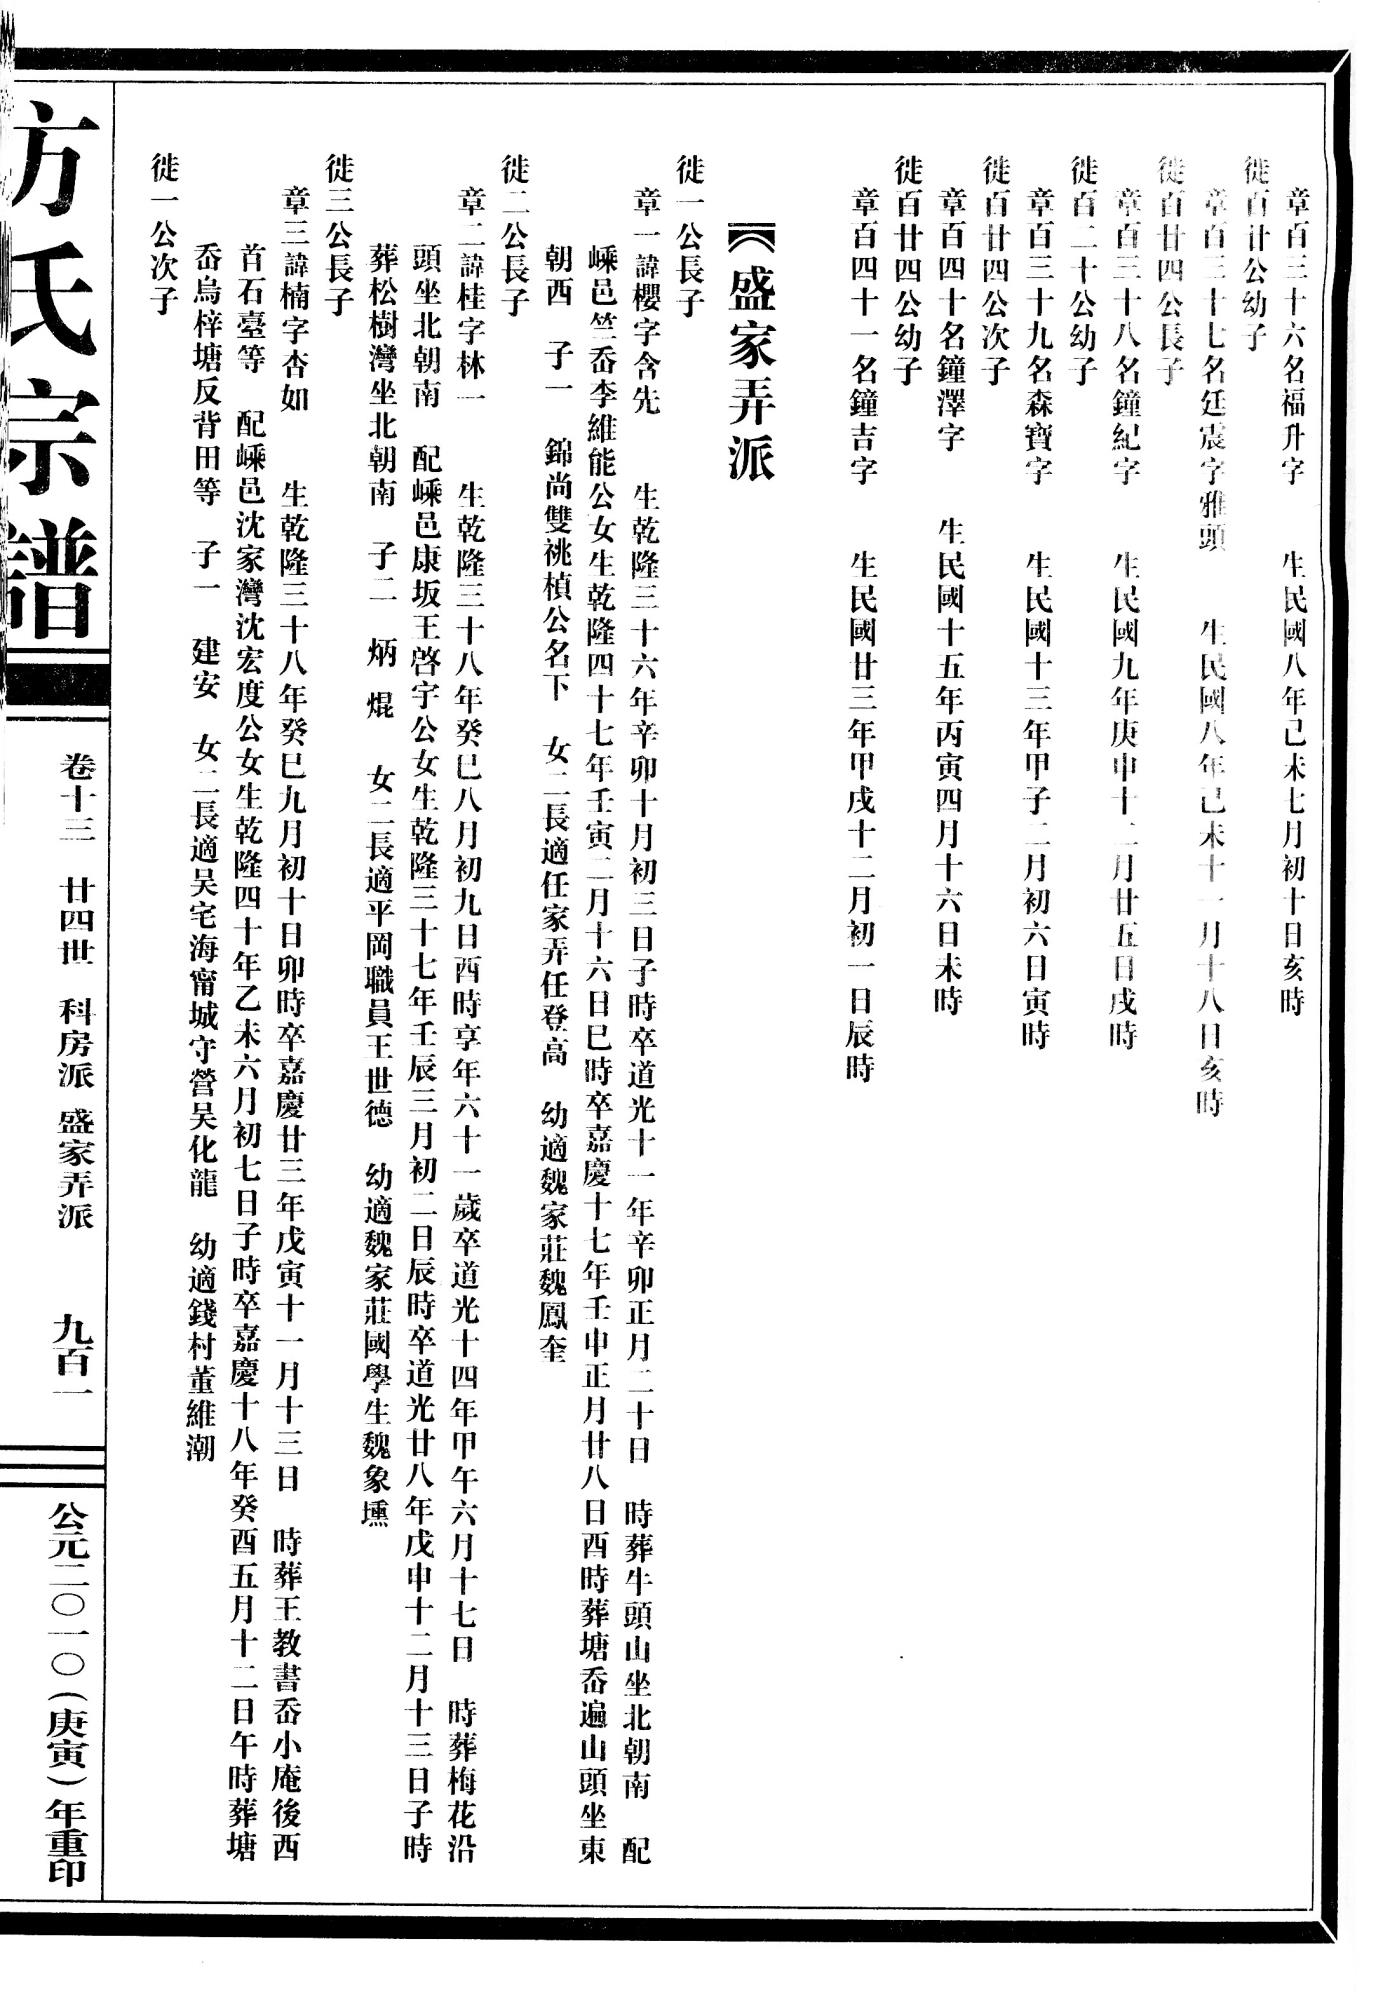 章百三十六名福升字　　生民國八年己未七月初十日亥時
徙百廿公幼子
章百三十七名廷震字雅頭　　生民國八年己未十一月十八日亥時
徙百廿四公長子
章百三十八名鐘紀字　　生民國九年庚申十二月廿五日戌時
徙百二十公幼子
章百三十九名森寶字　　生民國十三年甲子二月初六日寅時
徙百廿四公次子
章百四十名鐘澤字　　生民國十五年丙寅四月十六日未時
徙百廿四公幼子
章百四十一名鐘吉字　　生民國廿三年甲戌十二月初一日辰時
盛家弄派
徙一公長子
章一諱櫻字含先　　生乾隆三十六年辛卯十月初三日子時卒道光十一年辛卯正月二十日　時葬牛頭山坐北朝南　配
嵊邑竺岙李維能公女生乾隆四十七年壬寅二月十六日巳時卒嘉慶十七年壬申正月廿八日酉時葬塘岙遍山頭坐東
朝西　子一　錦尚雙祧楨公名下　女二長適任家弄任登高　幼適魏家莊魏鳳奎
徙二公長子
章二諱桂字林一　　生乾隆三十八年癸巳八月初九日酉時享年六十一歲卒道光十四年甲午六月十七日　時葬梅花沿
頭坐北朝南　配嵊邑康坂王啓宇公女生乾隆三十七年壬辰三月初二日辰時卒道光廿八年戊申十二月十三日子時
葬松樹灣坐北朝南　子二　炳　焜　女二長適平岡職員王世德　幼適魏家莊國學生魏象壎
徙三公長子
章三諱楠字杏如　　生乾隆三十八年癸巳九月初十日卯時卒嘉慶廿三年戊寅十一月十三日　時葬王教書岙小庵後西
首石臺等　配嵊邑沈家灣沈宏度公女生乾隆四十年乙未六月初七日子時卒嘉慶十八年癸酉五月十二日午時葬塘
岙烏梓塘反背田等　子一　建安　女二長適吴宅海甯城守營吴化龍　幼適錢村董維潮
徙一公次子
方氏宗譜
卷十三　廿四世　科房派 盛家弄派　九百一
公元二〇一〇（庚寅）年重印